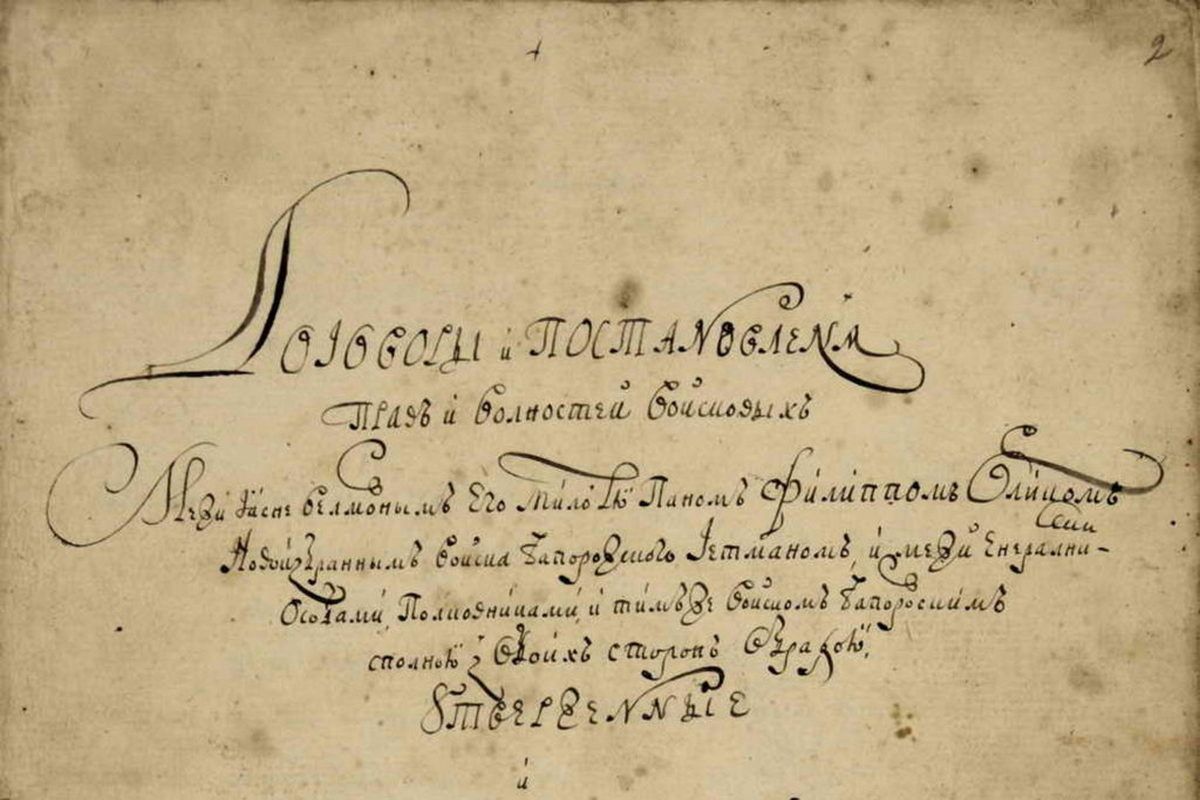 2
Договоры и Постановлені҄я
Правъ и волностей войсковыхъ
Межи Ясне велможнымъ Его милостю Паномъ Филиппомъ Орликомъ
Новоизбраннымъ войска Запорожского Гетманомъ, и межи Енералними
Особами, Полковниками, и тимъже войскомъ Запорозскимъ
сполною з обоихъ сторонъ обрадою,
Утверженные
и